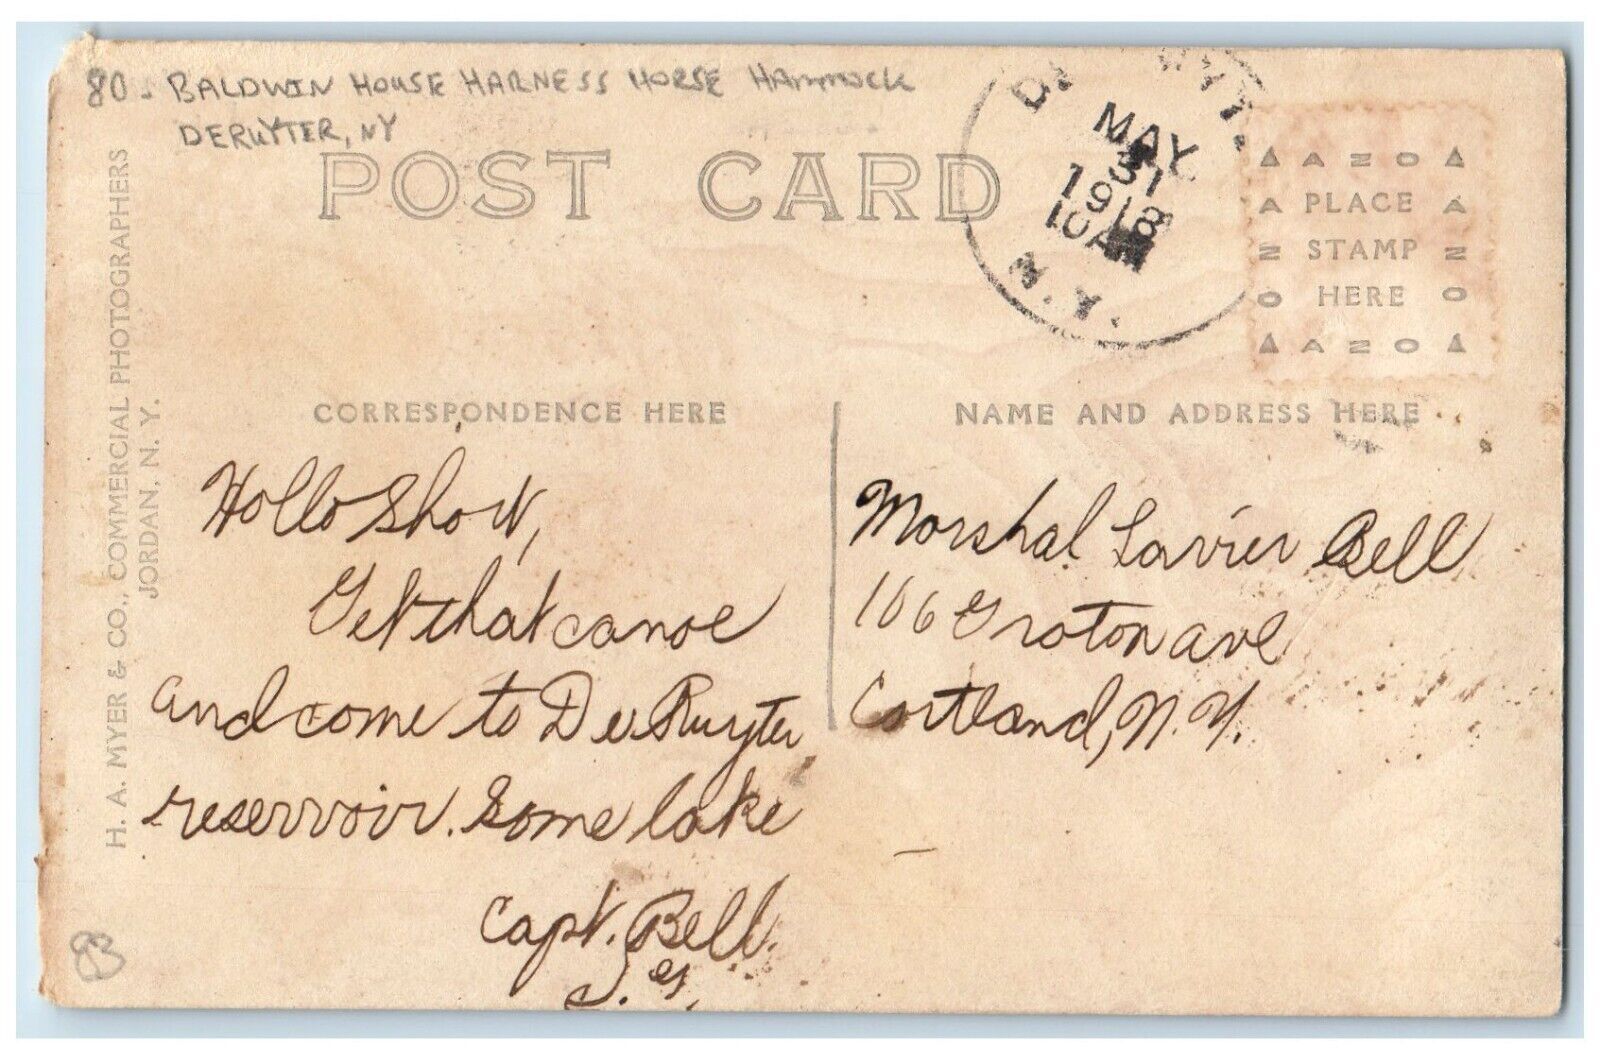 80 - BALDWIN HOUSE HARNESS HORSE HAMMOCK
DERUYTER, NY
POST CARD
MAY
31
1918
10AM
N.Y.
AZO
PLACE
STAMP
HERE
AZO
H. A. MYER & CO., COMMERCIAL PHOTOGRAPHERS
JORDAN, N. Y.
CORRESPONDENCE HERE
NAME AND ADDRESS HERE
Hollo Shorty,
Get that canoe
and come to DeRuyter
reservoir. Some lake
Capt. Bell.
Marshal Lavier Bell
106 Groton ave
Cortland, N. Y.